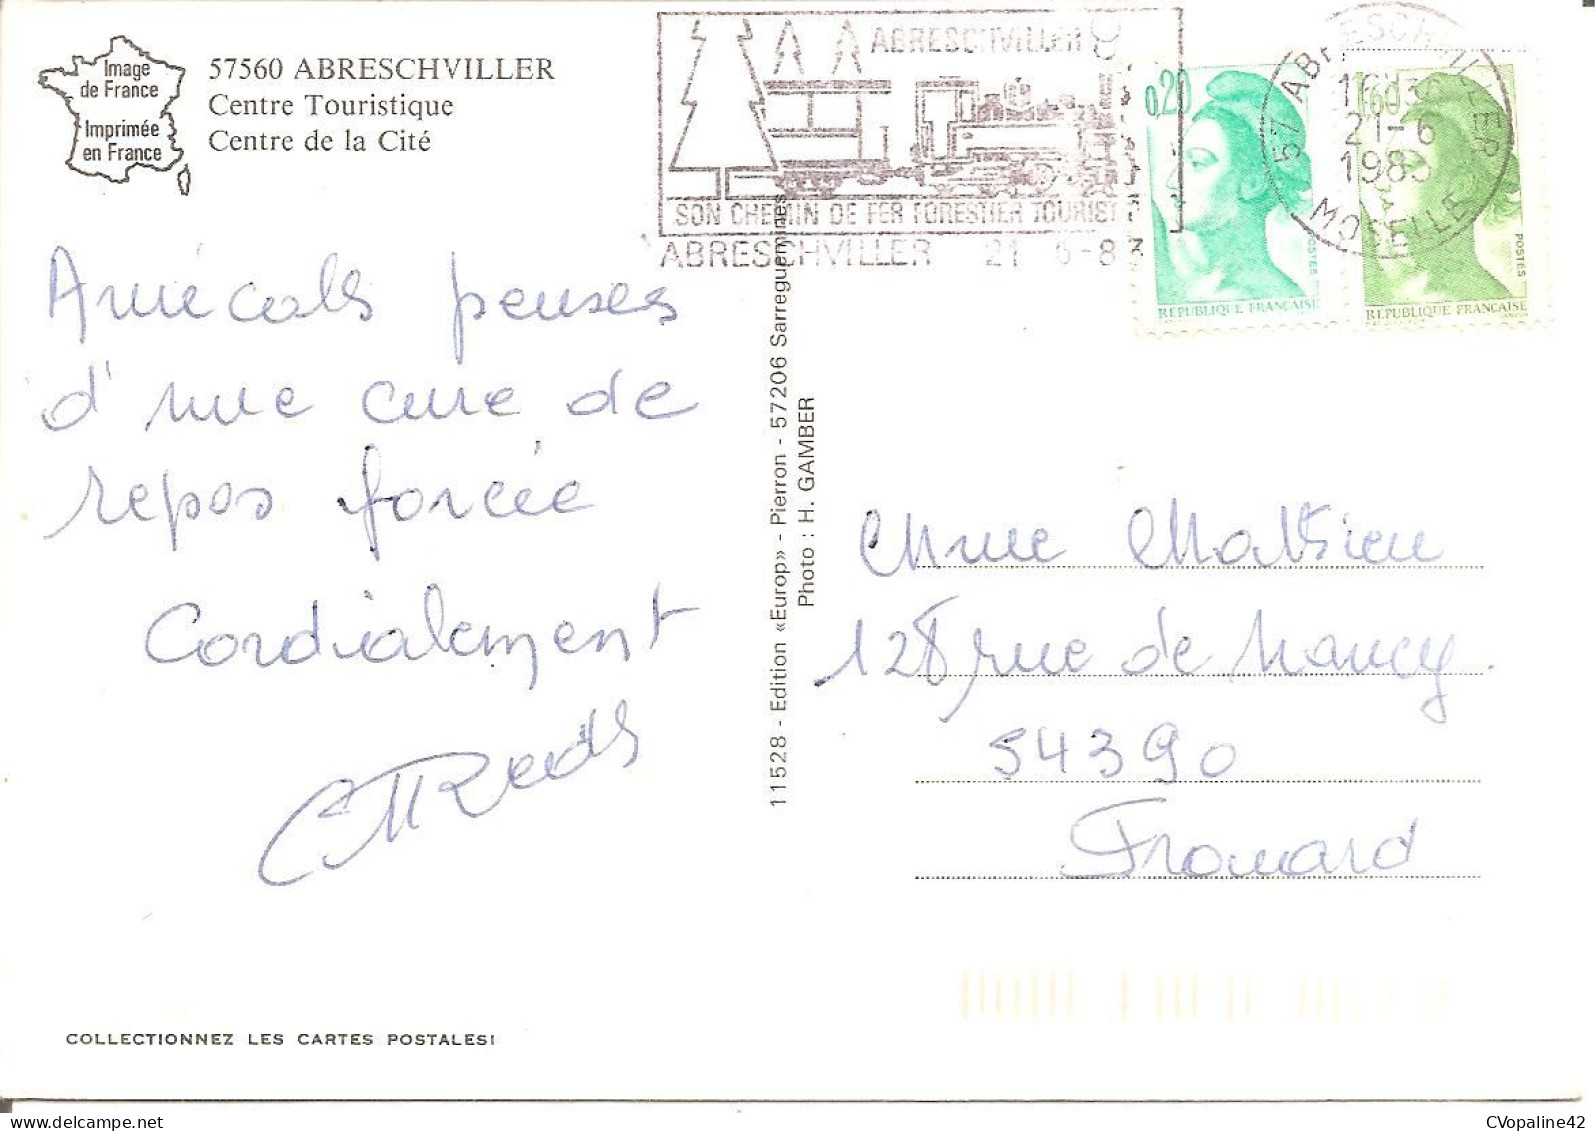 Image
de France
Imprimée
en France
57560 ABRESCHVILLER
Centre Touristique
Centre de la Cité
ABRESCHVILLER
SON CHEMIN DE FER FORESTIER TOURIST
ABRESCHVILLER 21 6-83
0,20
POSTES
REPUBLIQUE FRANÇAISE
1,60
POSTES
REPUBLIQUE FRANÇAISE
57 ABRESCHVILLER
21-6
1983
MOSELLE
Amicals penses
d'une cure de
repos forcée
Cordialement
11528 - Edition «Europ» - Pierron - 57206 Sarreguemines
Photo : H. GAMBER
Mme Mathieu
128 rue de Nancy.
54390
Frouard
COLLECTIONNEZ LES CARTES POSTALES!
CVopaline42